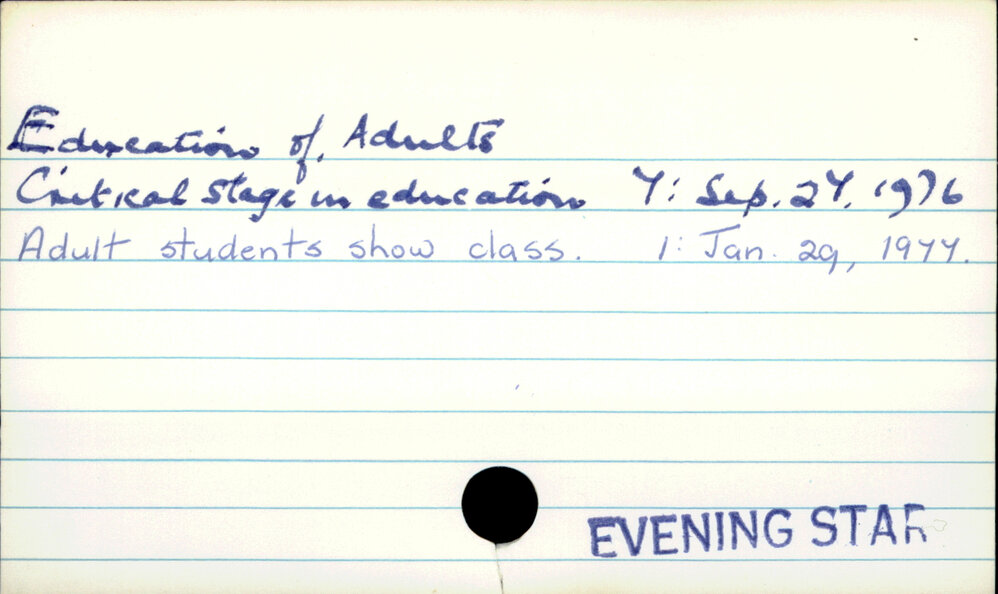 Education of Adults
Critical stage in education 7: Sep. 27, 1976
Adult students show class. 1: Jan. 29, 1977.
EVENING STAR